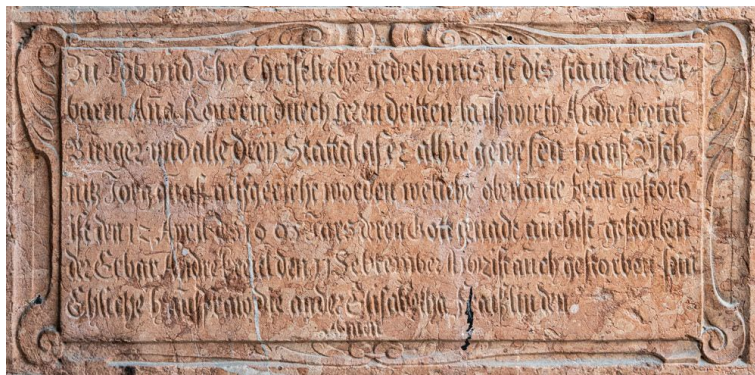 Zu Lob und Ehr Christlicher gedechtnus ist dis stainlt der Er
baren Ana durch Iren dritten haußwirth Andre
Burger und alle dreÿ Stattglaser alhie gewesen Hanß
Jorg aufgericht worden welche obekante frau gestorb
ist den 12 April des 16 03 Jars deren Gott genadt auch ist gestorben
der Erbar Andre den 11 September ist auch gestorben sein
Ehliche haußfrau die ander Elisabetha den
Amen